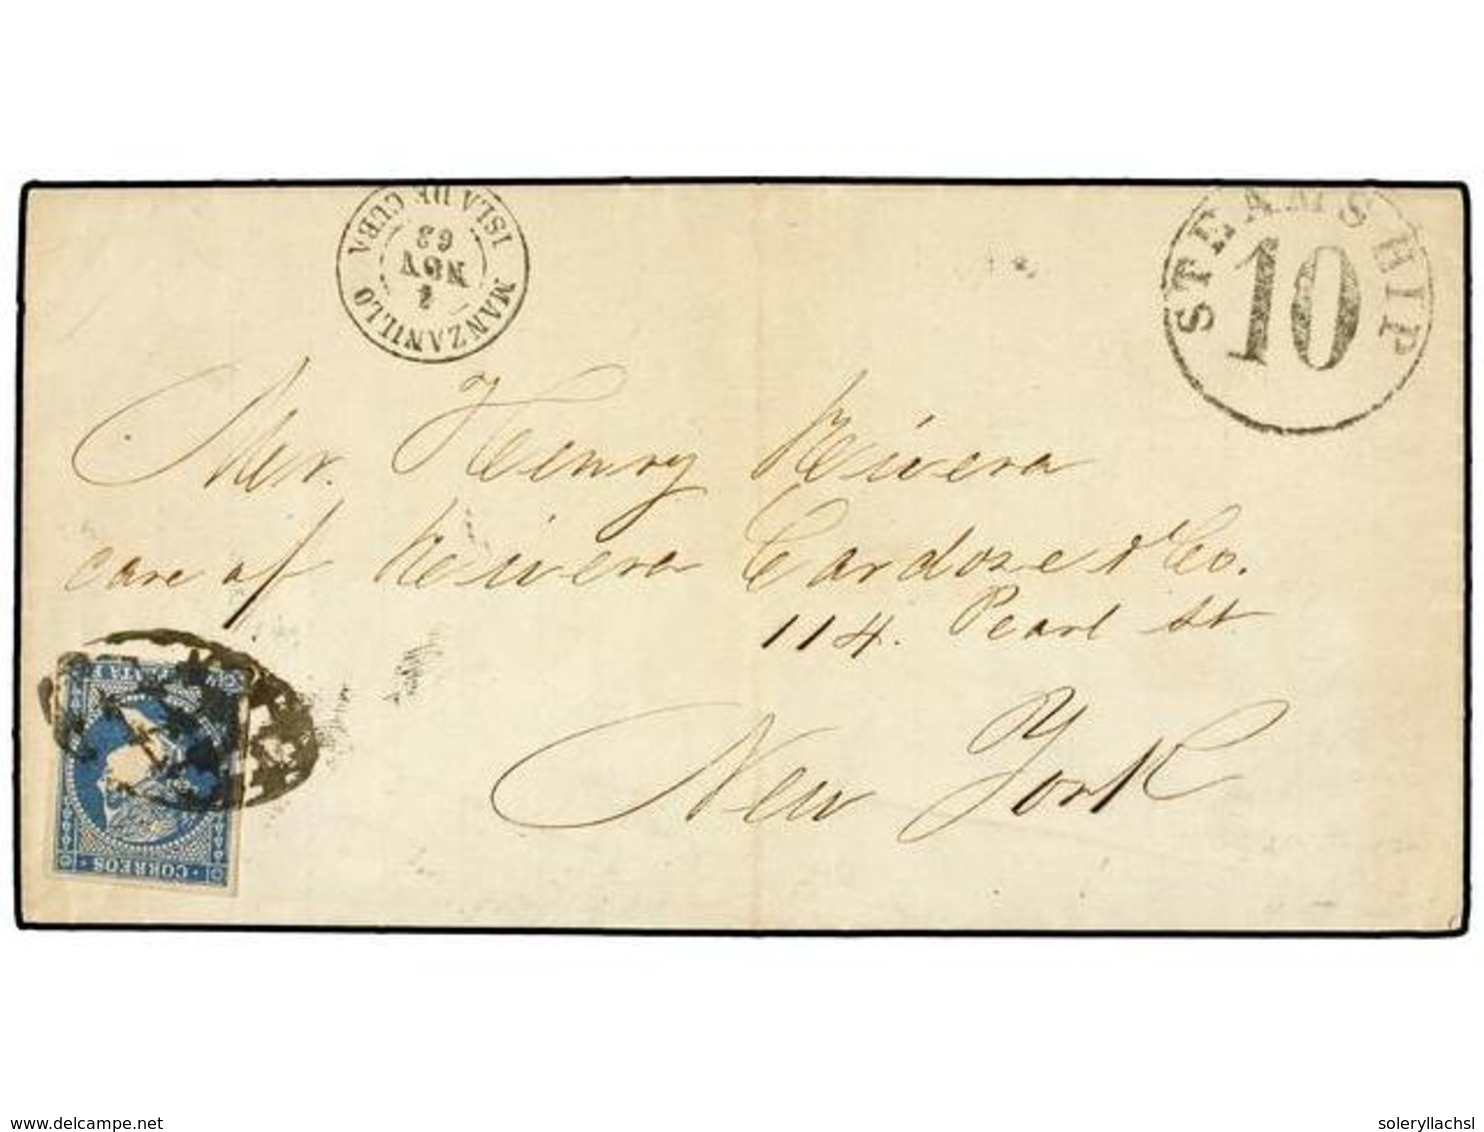 ISLA DE CUBA
MANZANILLO
NOV
63
STEAMSHIP
10
Mr. Henry Rivera
care of Rivera Cardoze & Co.
114. Pearl St
New York
CORREOS
delcampe.net
soleryllachsl